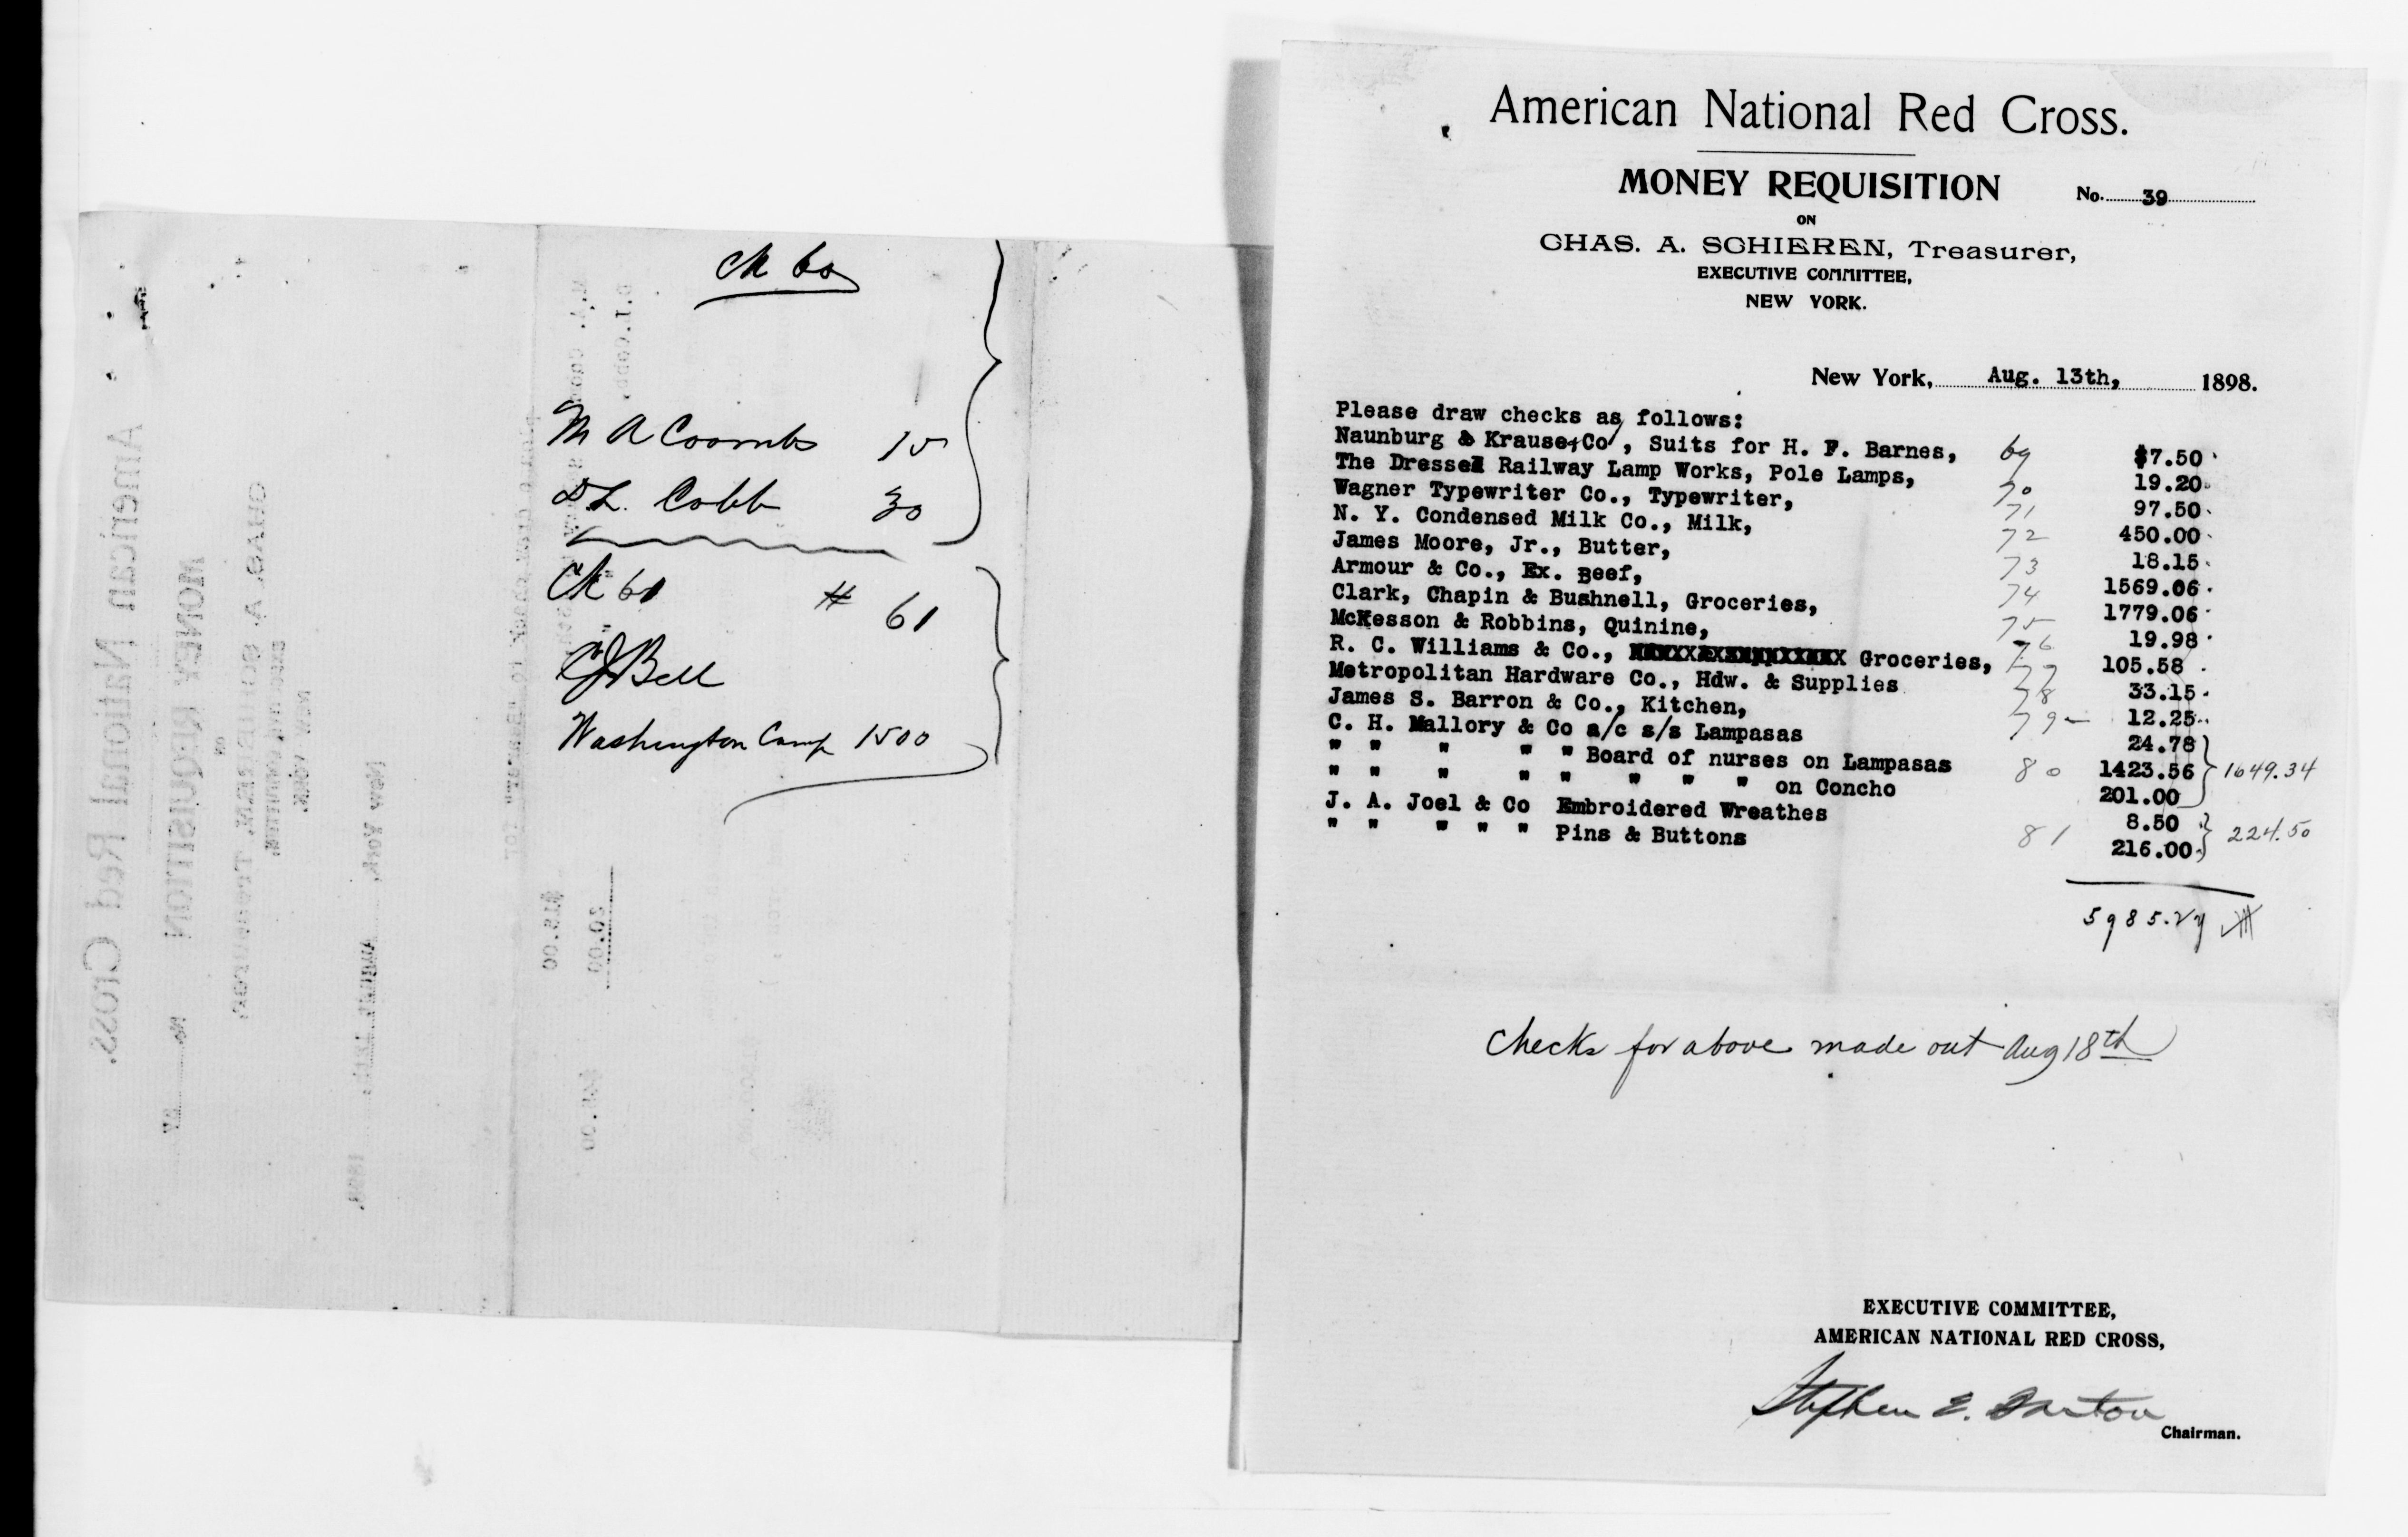 Ck 60
M A Coombs 15
D. L. Cobb 30
Ck 61 # 61
C J Bell
Washington Camp 1500
American National Red Cross.
MONEY REQUISITION No. 39
ON
CHAS. A. SCHIEREN, Treasurer,
EXECUTIVE COMMITTEE,
NEW YORK.
New York, Aug. 13th, 1898.
Please draw checks as follows:
Naunburg & Krause+Co, Suits for H. F. Barnes, 69 $7.50
The Dressel Railway Lamp Works, Pole Lamps, 70 19.20
Wagner Typewriter Co., Typewriter, 71 97.50
N. Y. Condensed Milk Co., Milk, 72 450.00
James Moore, Jr., Butter, 73 18.15
Armour & Co., Ex. Beef, 74 1569.06
Clark, Chapin & Bushnell, Groceries, 75 1779.06
McKesson & Robbins, Quinine, 76 19.98
R. C. Williams & Co., Groceries, 77 105.58
Metropolitan Hardware Co., Hdw. & Supplies 78 33.15
James S. Barron & Co., Kitchen, 79 12.25
C. H. Mallory & Co a/c s/s Lampasas 24.78
" " " " " Board of nurses on Lampasas 80 1423.56 1649.34
" " " " " " " " on Concho 201.00
J. A. Joel & Co Embroidered Wreathes 8.50
" " " " " Pins & Buttons 81 216.00 224.50
5985.27
Checks for above made out Aug 18th
EXECUTIVE COMMITTEE,
AMERICAN NATIONAL RED CROSS,
Stephen E. Barton
Chairman.